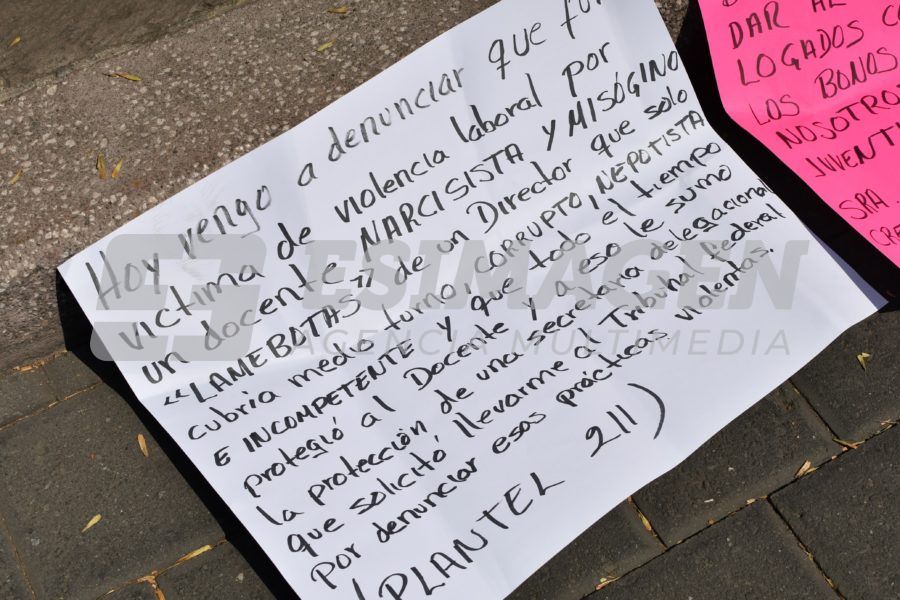 Hoy vengo a denunciar que fo
victima de violencia laboral por
un docente NARCISISTA Y MISÓGINO
"LAMEBOTAS" de un Director que solo
cubría medio turno, CORRUPTO, NEPOTISTA
E INCOMPETENTE y que todo el tiempo
protegió al Docente y a eso le sumo
la protección de una secretaria delegacional
que solicitó, llevarme al Tribunal Federal
por denunciar esas prácticas violentas.
(PLANTEL 211)
DAR AL
LOGADOS CO
LOS BONOS
NOSOTRO
JUVENTI
SRA.
CRE
ESIMAGEN
AGENCIA MULTIMEDIA